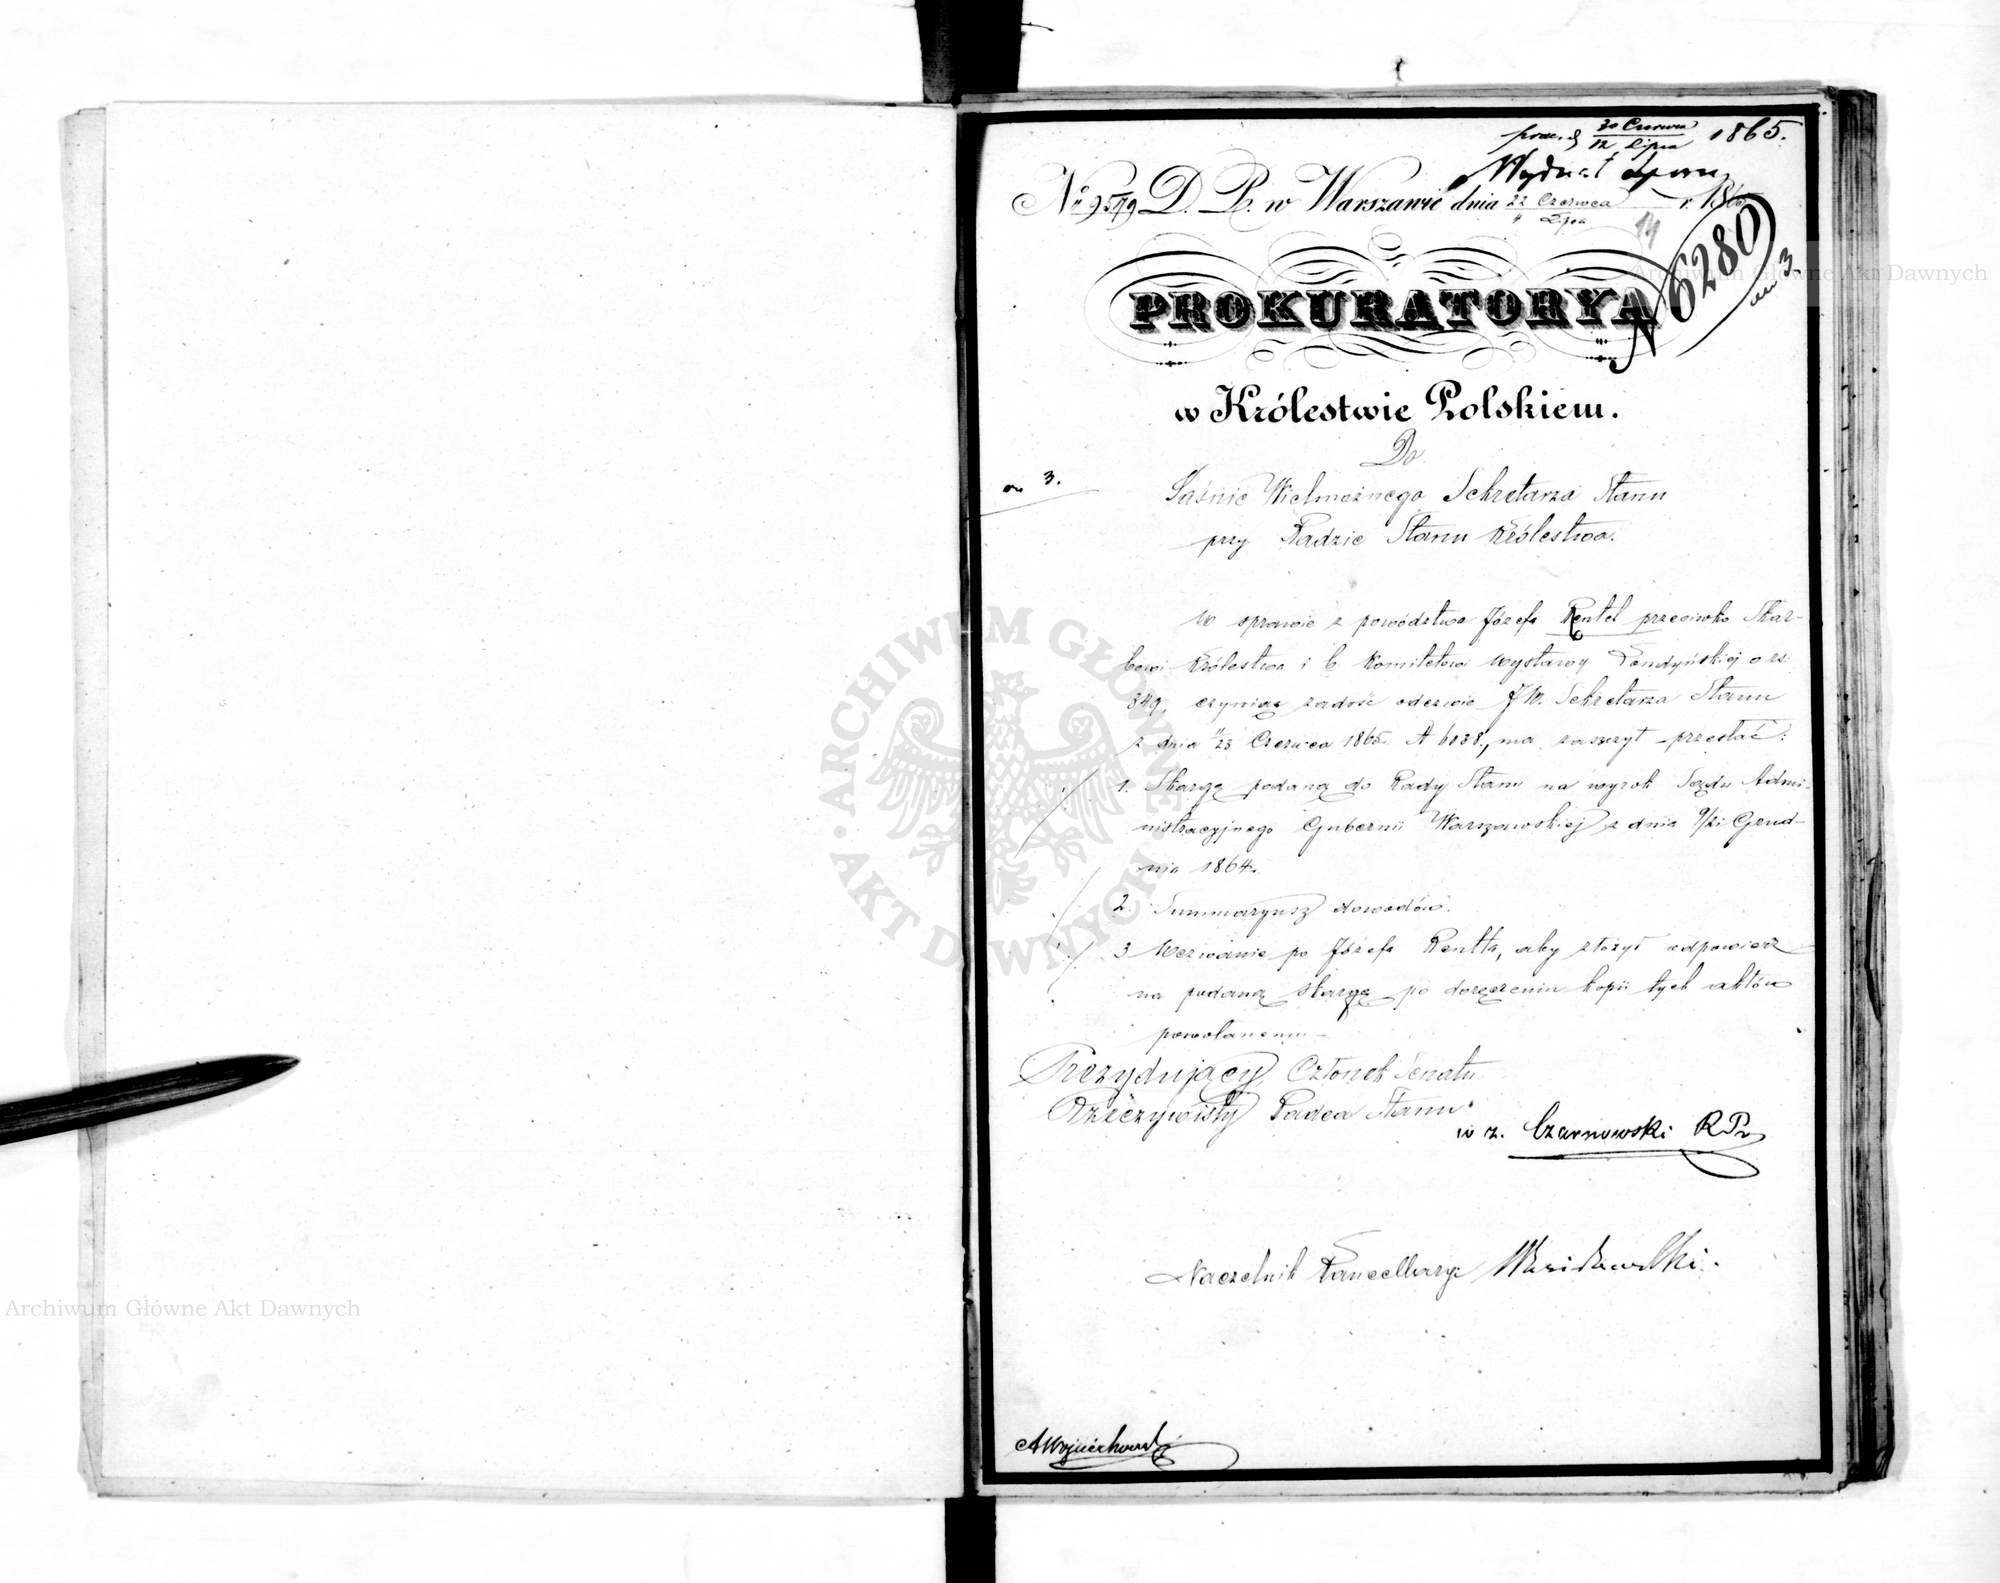 30 Czerwca
12 Lipca 1865.
Wydział sporn.
No 9579 D. P. w Warszawie dnia 22 Czerwca r. 186
4 Lipca
14
N 6280
3
PROKURATORYA
w Królestwie Polskiem.
Do
3.
Jaśnie Wielmożnego Sekretarza Stanu
przy Radzie Stanu Królestwa.
W sprawie z powództwa Józefa Rentel przeciwko Skar-
bowi Królestwa i b. Komitetowi wystawy Londyńskiej o rs:
349, czyniąc zadość odezwie JW. Sekretarza Stanu
z dnia 11/23 Czerwca 1865 N 6038., ma zaszczyt przesłać:
1. Skargę podaną do Rady Stanu na wyrok Sądu Admi-
nistracyjnego Gubernii Warszawskiej z dnia 9/21 Grud-
nia 1864.
2. Summaryusz dowodów.
3 Wezwanie po Józefa Rentla, aby złożył odpowiedź
na podaną skargę po doręczeniu kopii tych aktów
powołanemu
Prezydujący, Członek Senatu
Rzeczywisty Radca Stanu
w z. Czarnowski R Pr
Naczelnik Kancellaryi
AWojciechowski
Archiwum Główne Akt Dawnych
ARCHIWUM GŁÓWNE AKT DAWNYCH
Archiwum Główne Akt Dawnych